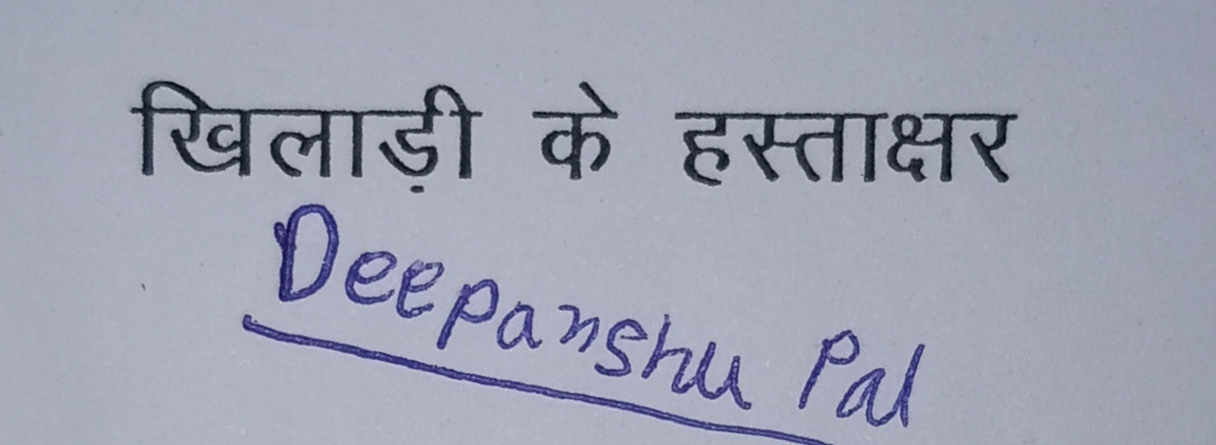 खिलाड़ी के हस्ताक्षर
Deepanshu Pal